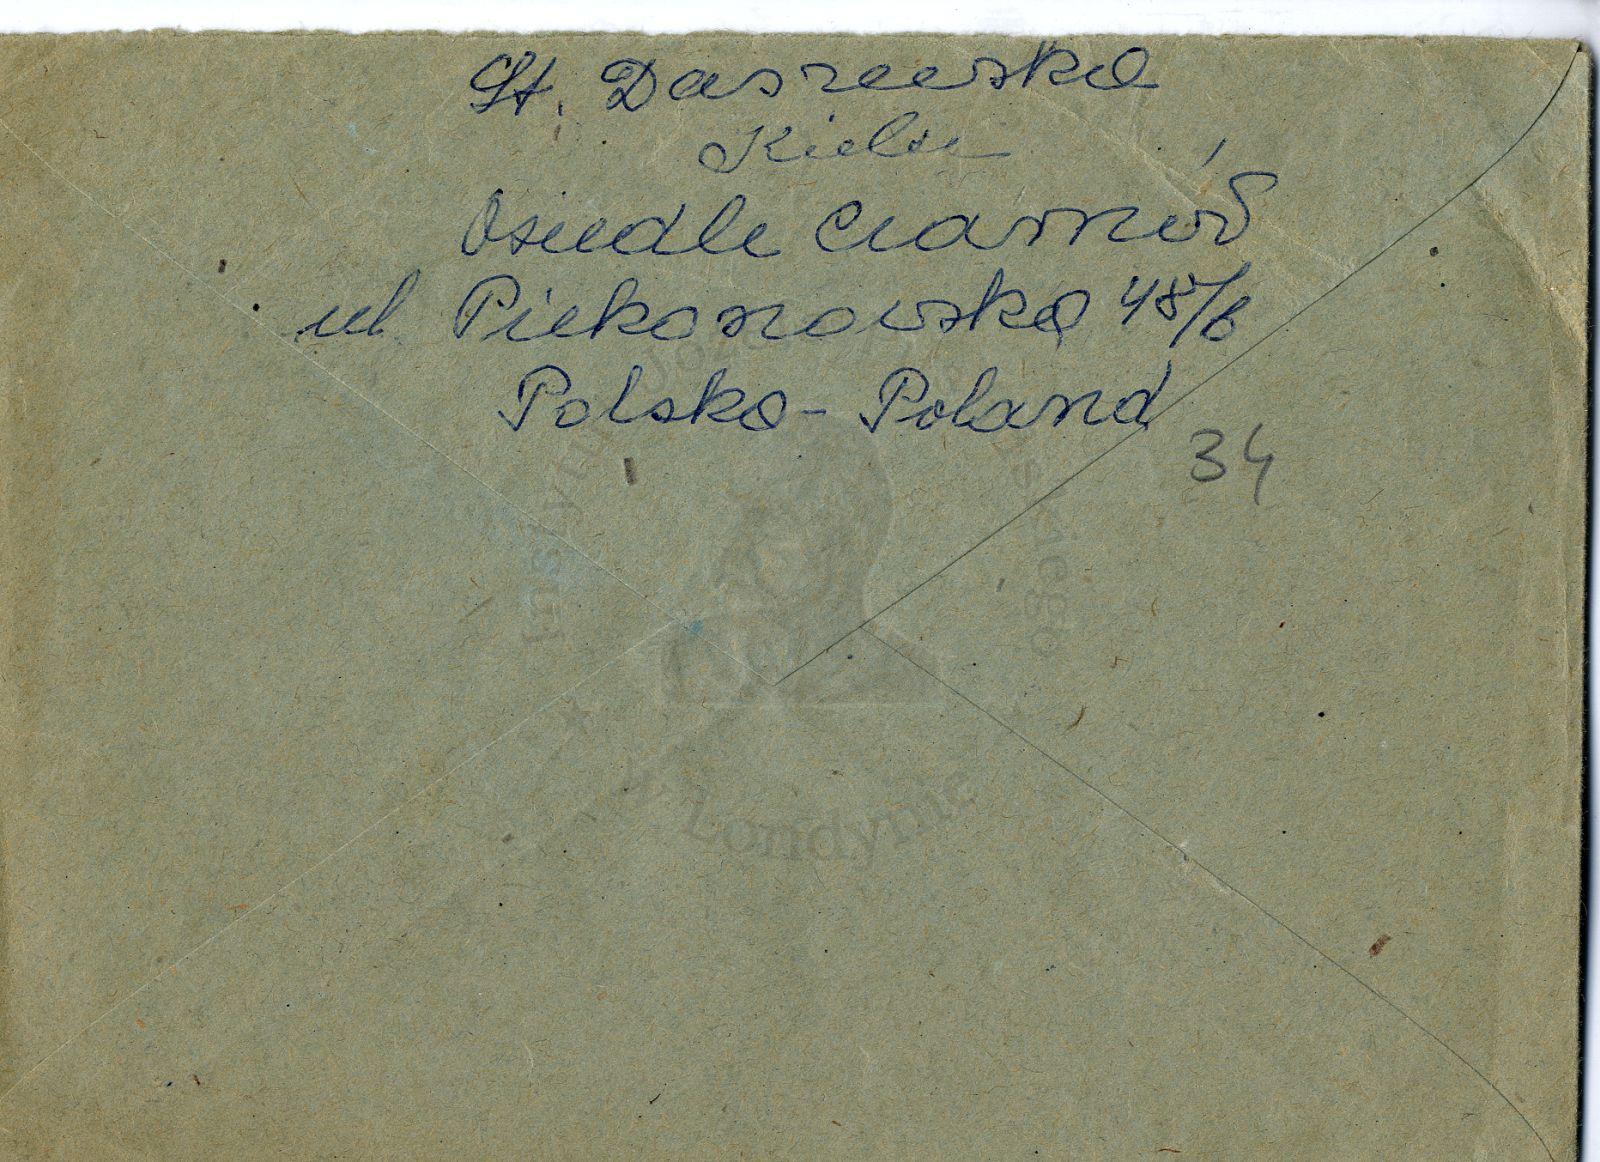 St. Daszewska
Kielce
Osiedle Czarnów
ul. Piekoszowska 48/6
Polska - Poland
34
Instytut Józefa Piłsudskiego
w Londynie